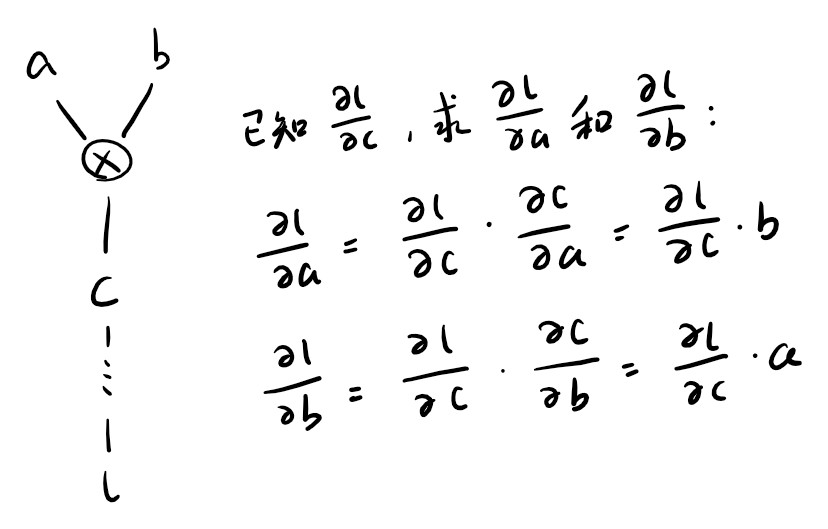 a b
×
c
l
已知 ∂l/∂c , 求 ∂l/∂a 和 ∂l/∂b :
∂l/∂a = ∂l/∂c · ∂c/∂a = ∂l/∂c · b
∂l/∂b = ∂l/∂c · ∂c/∂b = ∂l/∂c · a